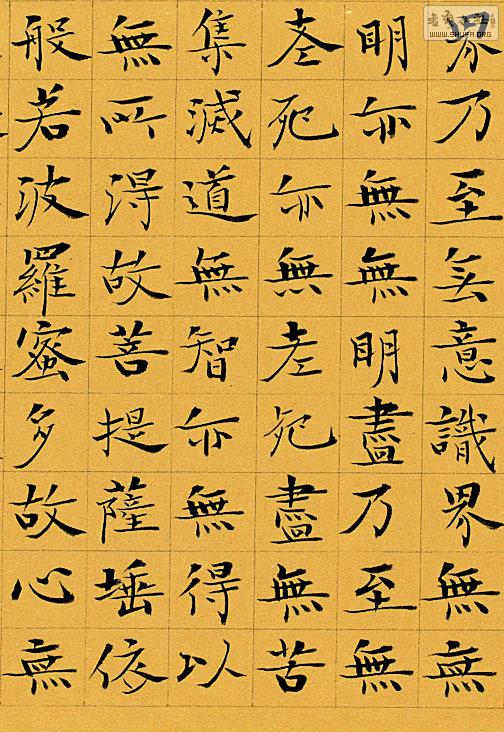 界乃至無意識界無無
明亦無無明盡乃至無
老死亦無老死盡無苦
集滅道無智亦無得以
無所得故菩提薩埵依
般若波羅蜜多故心無
WWW.SHUFA.ORG